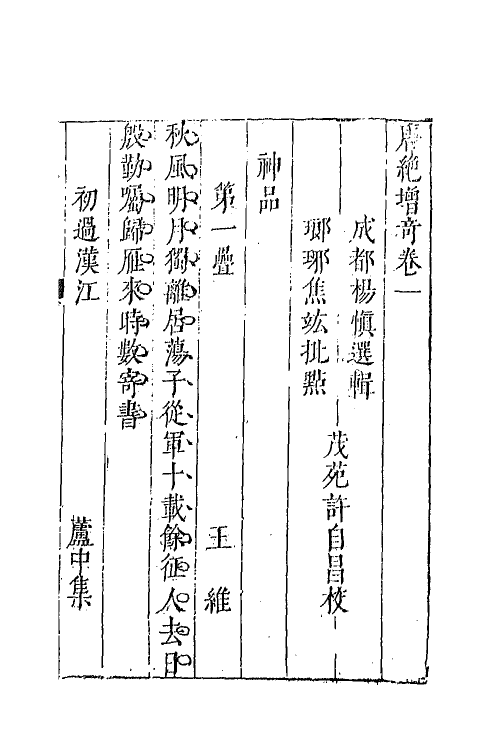 唐絶增奇卷一
成都楊慎選輯
瑯琊焦竑批點
茂苑許自昌校
神品
第一疊 王維
秋風明月獨離居蕩子從軍十載餘征人去日
殷勤囑歸雁來時數寄書
初過漢江 蘆中集